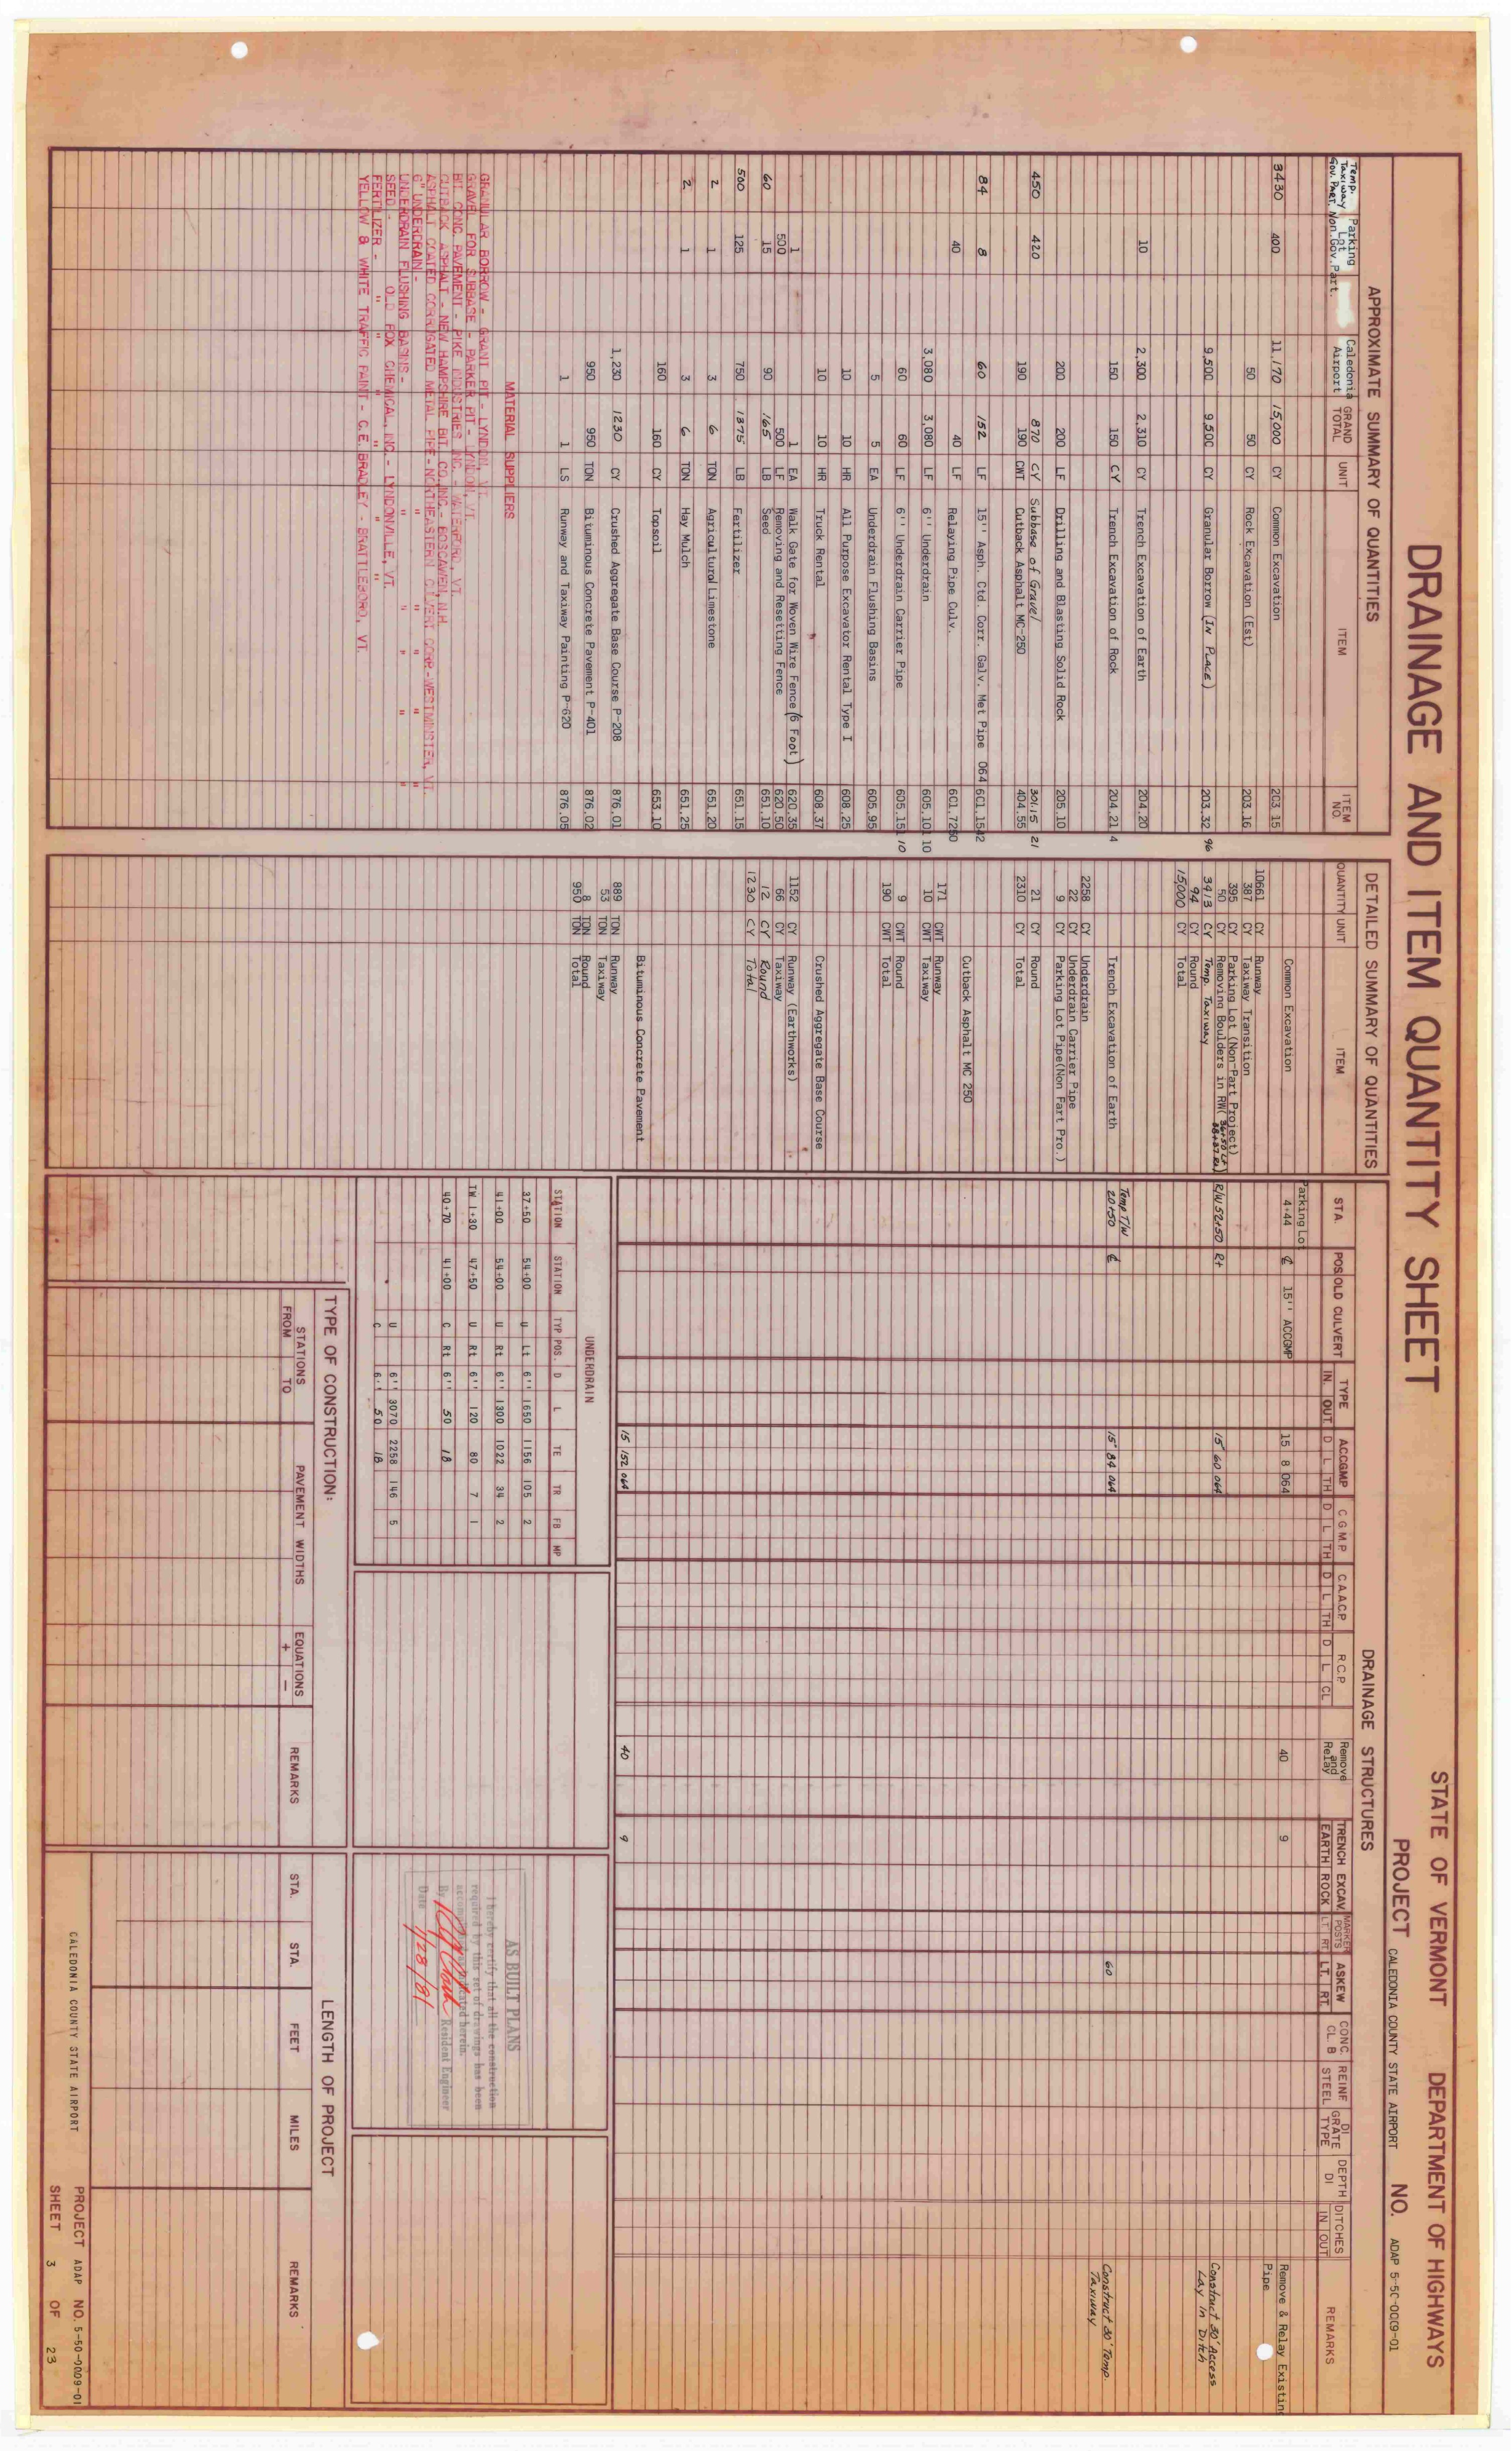 DRAINAGE AND ITEM QUANTITY SHEET
STATE OF VERMONT DEPARTMENT OF HIGHWAYS
PROJECT CALEDONIA COUNTY STATE AIRPORT NO. ADAP 5-50-0009-01
APPROXIMATE SUMMARY OF QUANTITIES
Temp. Taxiway Gov. Part. Parking Lot Non. Gov. Part. Caledonia Airport GRAND TOTAL UNIT ITEM ITEM NO.
3430 400 11,170 15,000 CY Common Excavation 203.15
50 50 CY Rock Excavation (Est) 203.16
9,500 9,500 CY Granular Borrow (IN PLACE) 203.32 96
10 2,300 2,310 CY Trench Excavation of Earth 204.20
150 150 CY Trench Excavation of Rock 204.21 4
200 200 LF Drilling and Blasting Solid Rock 205.10
450 420 870 CY Subbase of Gravel 301.15 21
190 190 CWT Cutback Asphalt MC-250 404.55
84 8 60 152 LF 15'' Asph. Ctd. Corr. Galv. Met Pipe 064 601.1542
40 40 LF Relaying Pipe Culv. 601.7280
3,080 3,080 LF 6'' Underdrain 605.10 10
60 60 LF 6'' Underdrain Carrier Pipe 605.15 10
5 5 EA Underdrain Flushing Basins 605.95
10 10 HR All Purpose Excavator Rental Type I 608.25
10 10 HR Truck Rental 608.37
1 1 EA Walk Gate for Woven Wire Fence (6 Foot) 620.35
500 500 LF Removing and Resetting Fence 620.50
60 15 90 165 LB Seed 651.10
500 125 750 1375 LB Fertilizer 651.15
2 1 3 6 TON Agricultural Limestone 651.20
2 1 3 6 TON Hay Mulch 651.25
160 160 CY Topsoil 653.10
1,230 1230 CY Crushed Aggregate Base Course P-208 876.01
950 950 TON Bituminous Concrete Pavement P-401 876.02
1 1 LS Runway and Taxiway Painting P-620 876.05
MATERIAL SUPPLIERS
GRANULAR BORROW - GRANT PIT - LYNDON, VT.
GRAVEL FOR SUBBASE - PARKER PIT - LYNDON, VT.
BIT. CONC. PAVEMENT - PIKE INDUSTRIES INC. - WATERFORD, VT.
CUTBACK ASPHALT - NEW HAMPSHIRE BIT. CO., INC. - BOSCAWEN, N.H.
ASPHALT COATED CORRUGATED METAL PIPE - NORTHEASTERN CULVERT CORP. - WESTMINSTER, VT.
6" UNDERDRAIN - " " " "
UNDERDRAIN FLUSHING BASINS - " " " "
SEED - OLD FOX CHEMICAL, INC. - LYNDONVILLE, VT.
FERTILIZER - " " " "
YELLOW & WHITE TRAFFIC PAINT - C.E. BRADLEY - BRATTLEBORO, VT.
DETAILED SUMMARY OF QUANTITIES
QUANTITY UNIT ITEM
Common Excavation
10661 CY Runway
387 CY Taxiway Transition
395 CY Parking Lot (Non-Part Project)
50 CY Removing Boulders in RW
3413 CY Temp. Taxiway
94 CY Round
15000 CY Total
Trench Excavation of Earth
2258 CY Underdrain
22 CY Underdrain Carrier Pipe
9 CY Parking Lot Pipe (Non Part Pro.)
21 CY Round
2310 CY Total
Cutback Asphalt MC 250
171 CWT Runway
10 CWT Taxiway
9 CWT Round
190 CWT Total
Crushed Aggregate Base Course
1152 CY Runway (Earthworks)
66 CY Taxiway
12 CY Round
1230 CY Total
Bituminous Concrete Pavement
889 TON Runway
53 TON Taxiway
8 TON Round
950 TON Total
DRAINAGE STRUCTURES
STA. POS OLD CULVERT TYPE IN OUT ACCGMP D L TH C G M P D L TH C.A.A.C.P. D L TH R.C.P. D L CL Remove and Relay TRENCH EXCAV. EARTH ROCK MARKER POSTS LT. RT. ASKEW LT. RT. CONC. CL. B REINF STEEL DI GRATE TYPE DEPTH DI DITCHES IN OUT REMARKS
Parking Lot
4+44 ℄ 15'' ACCGMP 15 8 064 40 9 Remove & Relay Existing Pipe
R/W 52+50 Rt 15" 60 064 Construct 30' Access Lay In Ditch
Temp T/W
20+50 ℄ 15" 84 064 60 Construct 30' Temp. Taxiway
15 152 064 40 9
UNDERDRAIN
STATION STATION TYP POS. D L TE TR FB MP
37+50 54+00 U Lt 6'' 1650 1156 105 2
41+00 54+00 U Rt 6'' 1300 1022 34 2
TW 1+30 47+50 U Rt 6'' 120 80 7 1
40+70 41+00 C Rt 6'' 50 18
U 6'' 3070 2258 146 5
C 6'' 50 18
AS BUILT PLANS
I hereby certify that all the construction
required by this set of drawings has been
accomplished as indicated herein.
By Resident Engineer
Date 1/28/81
TYPE OF CONSTRUCTION:
STATIONS FROM TO PAVEMENT WIDTHS EQUATIONS + − REMARKS
LENGTH OF PROJECT
STA. STA. FEET MILES REMARKS
CALEDONIA COUNTY STATE AIRPORT PROJECT ADAP NO. 5-50-0009-01
SHEET 3 OF 23